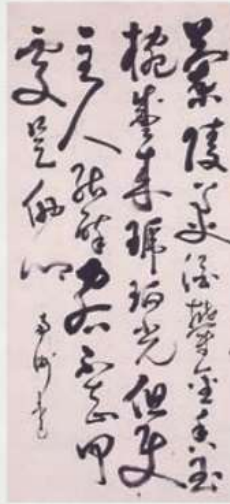 蘭陵美酒鬱金香玉
椀盛来琥珀光但使
主人能醉客不知何
處是他鄉